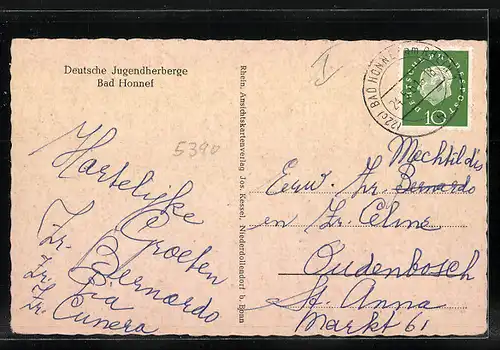 Deutsche Jugendherberge
Bad Honnef
5390
Hartelijke
Groeten
Zr. Bernardo
Zr. Pia
Zr. Cunera
Rhein. Ansichtskartenverlag Jos. Kessel, Niederdollendorf b. Bonn
(22c) BAD HONNEF
DEUTSCHE BUNDESPOST
10
Mechtildis
Eerw. Zr. Bernardo
en Zr. Celine
Oudenbosch
St. Anna
Markt 61